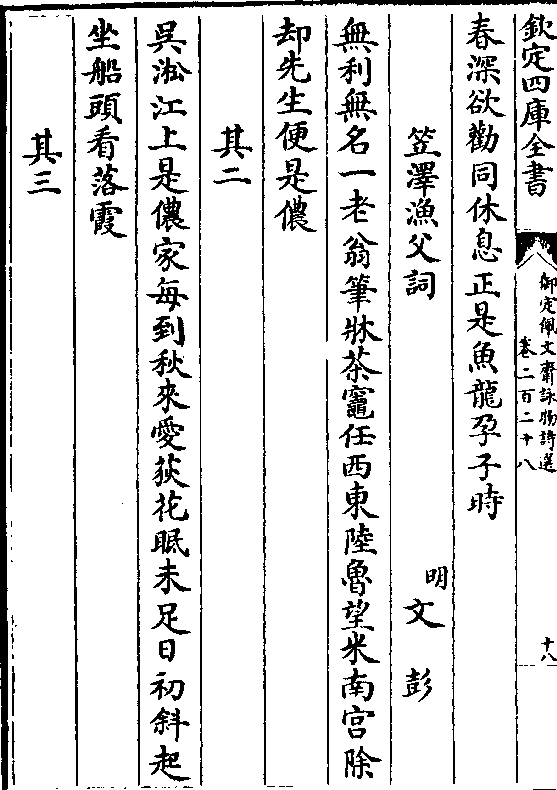 欽定四庫全書
御定佩文齋詠物詩選
卷二百二十八
十八
春深欲勸同休息正是魚龍孕子時
笠澤漁父詞
明文彭
無利無名一老翁筆牀茶竈任西東陸魯望米南宮除
却先生便是儂
其二
吳淞江上是儂家每到秋來愛荻花眠未足日初斜起
坐船頭看落霞
其三